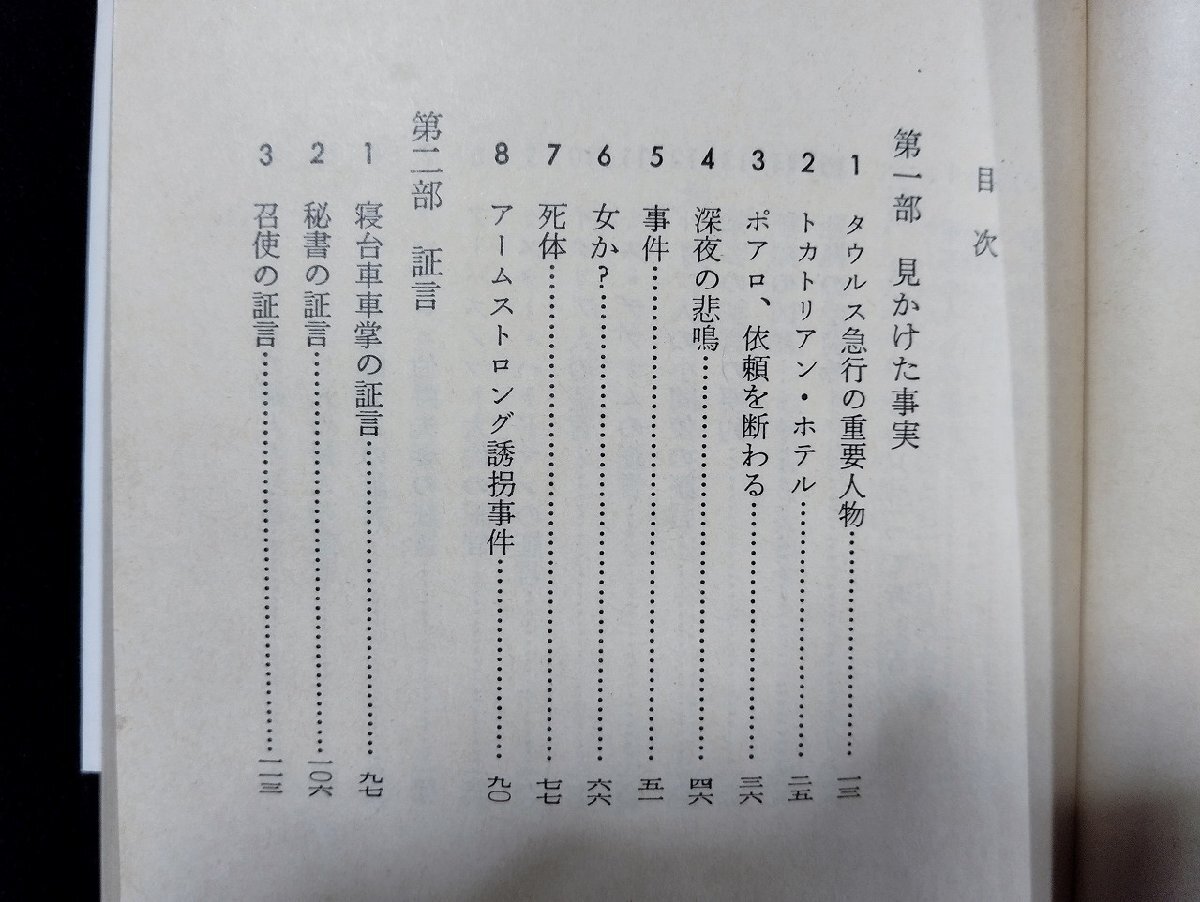 目次
第一部　見かけた事実
1　タウルス急行の重要人物……一三
2　トカトリアン・ホテル……二五
3　ポアロ、依頼を断わる……三六
4　深夜の悲鳴……四六
5　事件……五一
6　女か？……六六
7　死体……七七
8　アームストロング誘拐事件……九〇
第二部　証言
1　寝台車車掌の証言……九七
2　秘書の証言……一〇六
3　召使の証言……一一三